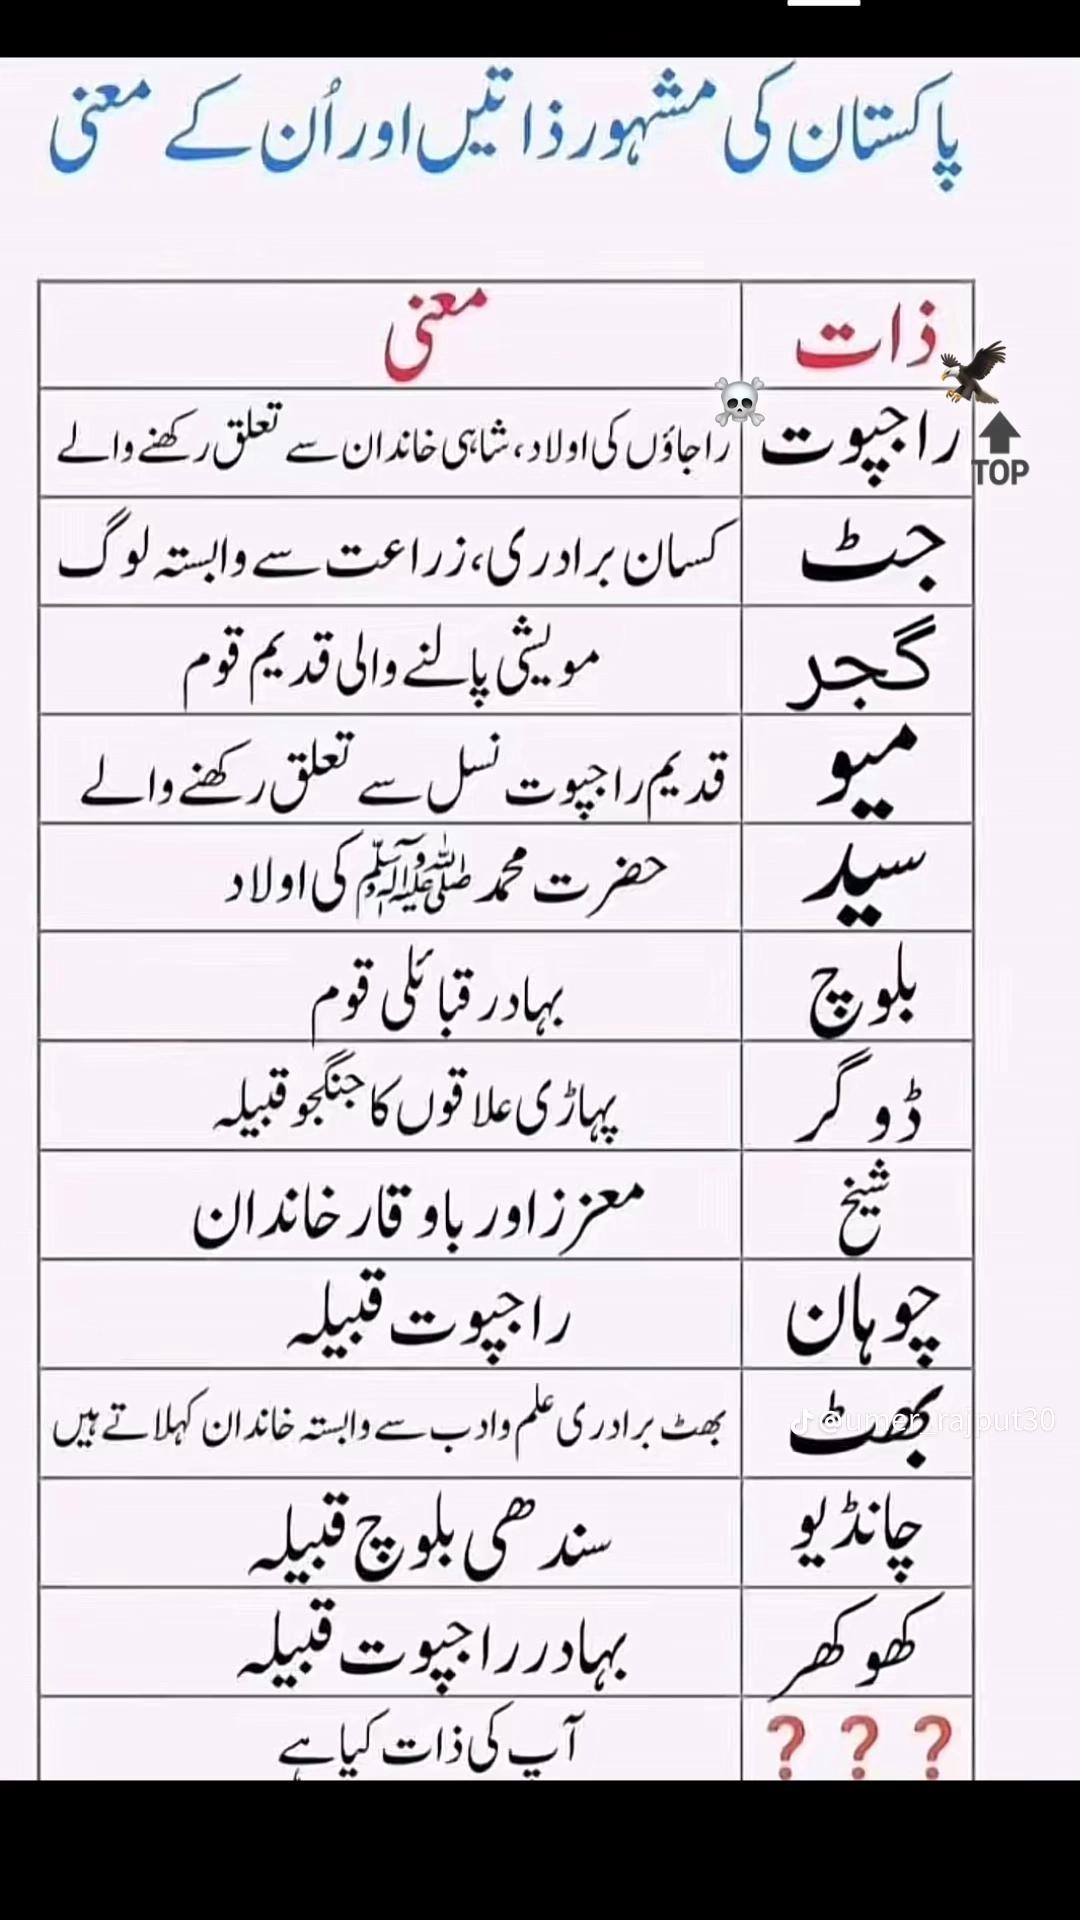 پاکستان کی مشہور ذاتیں اور اُن کے معنی
ذات معنی
TOP
راجپوت راجاؤں کی اولاد، شاہی خاندان سے تعلق رکھنے والے
جٹ کسان برادری، زراعت سے وابستہ لوگ
گجر مویشی پالنے والی قدیم قوم
میو قدیم راجپوت نسل سے تعلق رکھنے والے
سید حضرت محمد ﷺ کی اولاد
بلوچ بہادر قبائلی قوم
ڈوگر پہاڑی علاقوں کا جنگجو قبیلہ
شیخ معزز اور باوقار خاندان
چوہان راجپوت قبیلہ
بھٹ بھٹ برادری علم و ادب سے وابستہ خاندان کہلاتے ہیں
@umer_rajput30
چانڈیو سندھی بلوچ قبیلہ
کھوکھر بہادر راجپوت قبیلہ
❓❓❓ آپ کی ذات کیا ہے